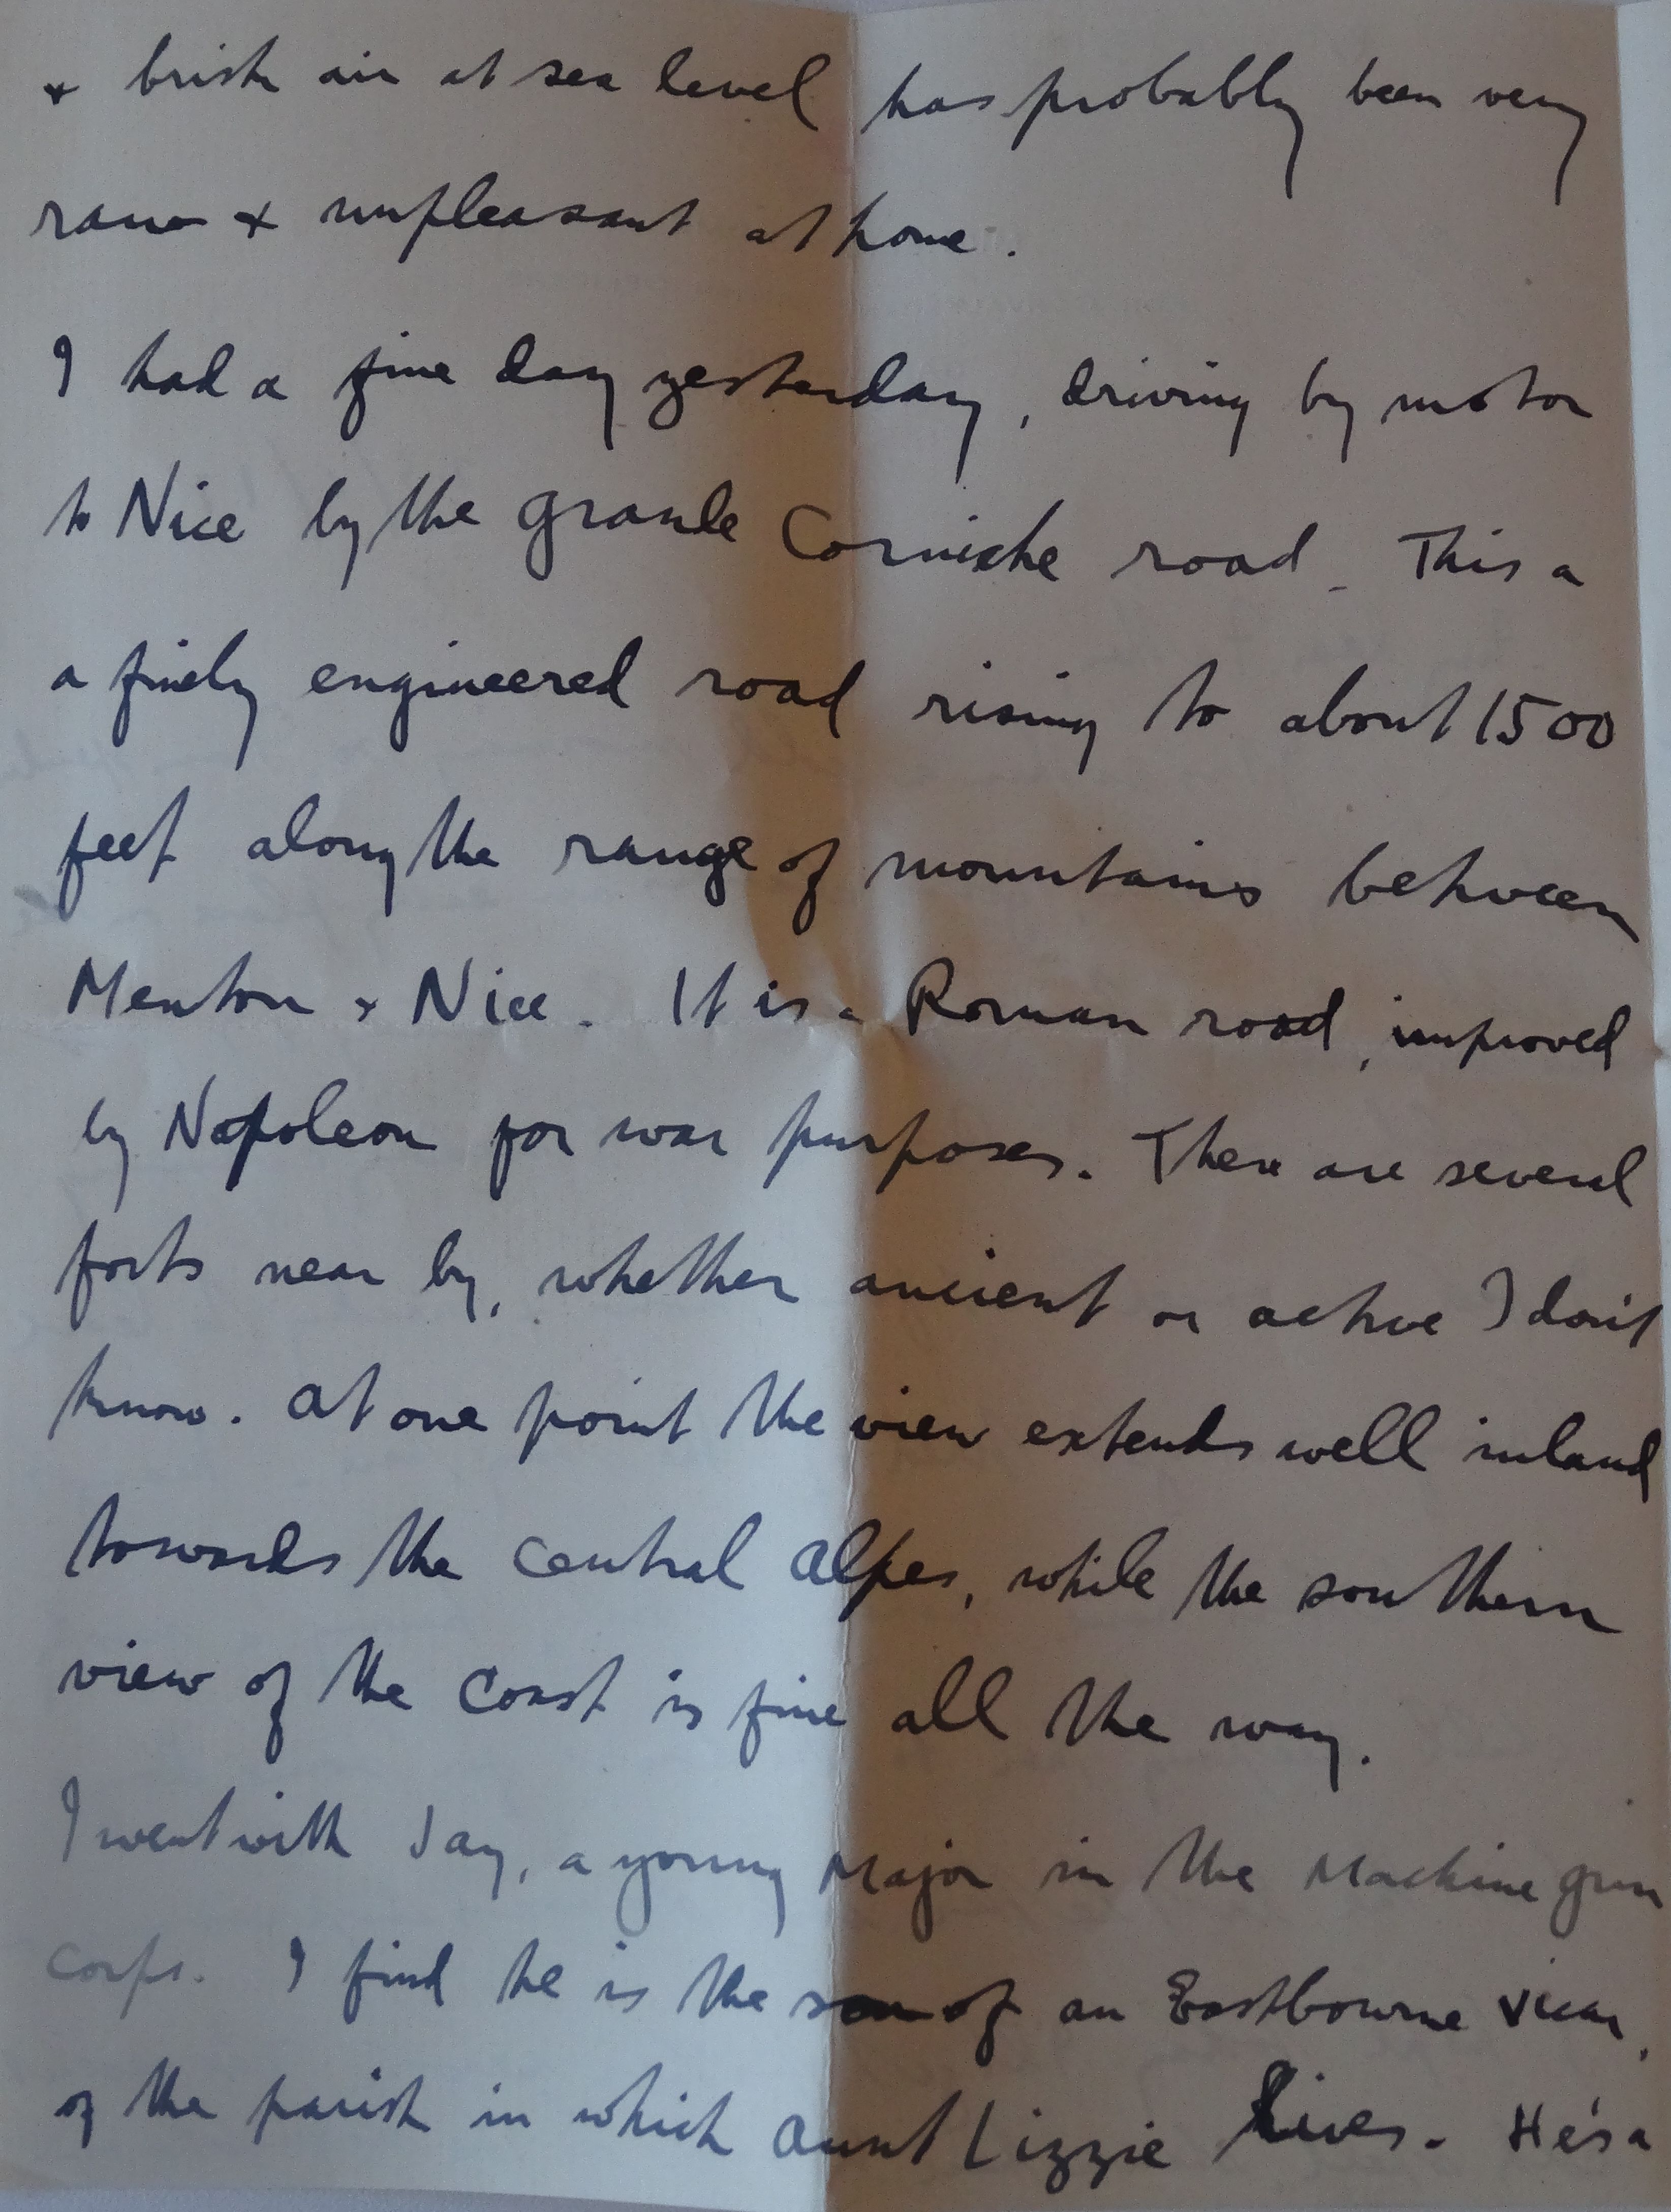 & brisk air at sea level has probably been very
raw & unpleasant at home.
I had a fine day yesterday, driving by motor
to Nice by the Grande Corniche road. This a
a finely engineered road rising to about 1500
feet along the range of mountains between
Menton & Nice. It is a Roman road, improved
by Napoleon for war purposes. There are several
forts near by, whether ancient or active I don't
know. At one point the view extends well inland
towards the central Alpes, while the southern
view of the coast is fine all the way.
I went with Jay, a young Major in the Machine gun
corps. I find he is the son of an Eastbourne vicar,
of the parish in which Aunt Lizzie lives. He's a